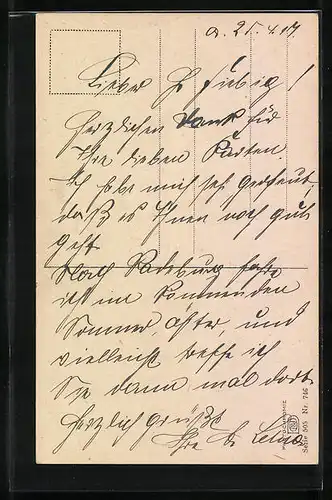 d. 25.4.17.
Lieber H Fiebig!
Herzlichen Dank für
Ihre lieben Karten.
Ich habe mich sehr gefreut,
daß es Ihnen noch gut
geht
Nach Radeburg fahre
ich im kommenden
Sommer öfter, und
vielleicht treffe ich
Sie dann mal dort.
Herzlich grüßt
Ihre
PHOTOCHEMIE
Serie 505 Nr. 746